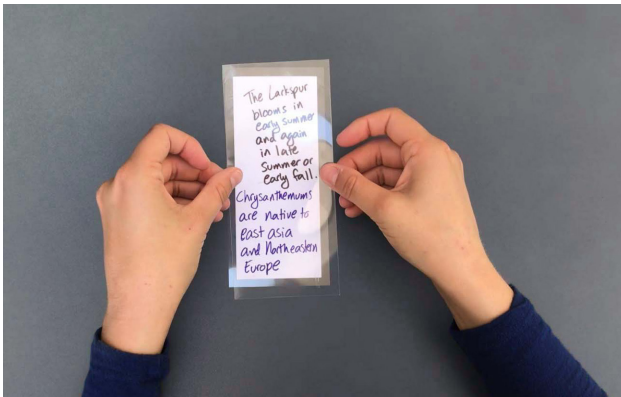 The Larkspur
blooms in
early summer
and again
in late
summer or
early fall.
Chrysanthemums
are native to
east asia
and Northeastern
Europe